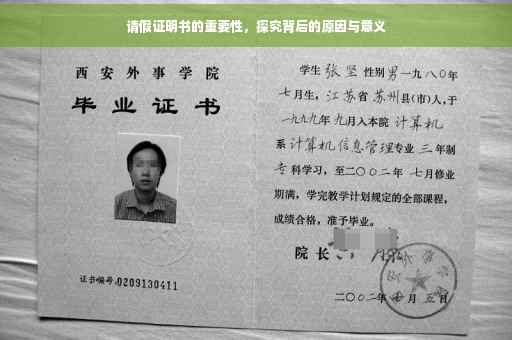 请假证明书的重要性，探究背后的原因与意义
西安外事学院
毕业证书
证书编号:0209130411
学生 张坚 性别 男 一九八〇年
七月生，江苏省 苏州县(市)人,于
一九九九年 九月入本院 计算机
系 计算机信息管理专业 三 年制
专 科学习，至二〇〇二年 七月修业
期满，学完教学计划规定的全部课程，
成绩合格，准予毕业。
院长
二〇〇二年 月 五日